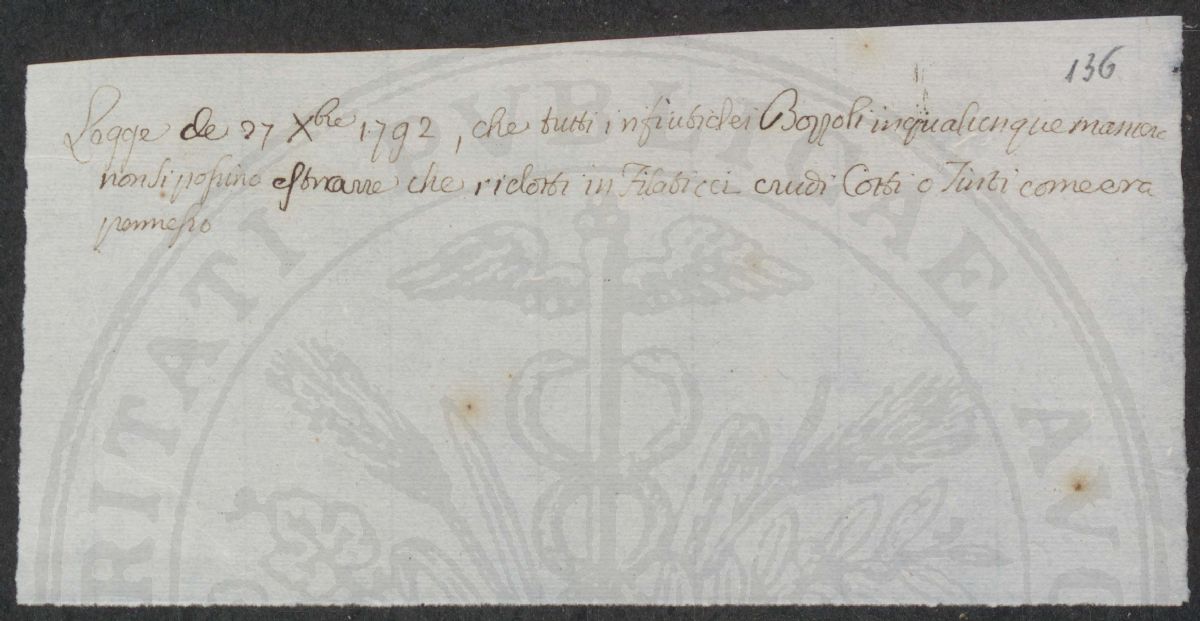 136
Legge de 27 Xbre 1792, che tutti i rifiuti dei Bozzoli in qualunque maniera
non si possino estrarre che ridotti in Filaticci crudi Cotti o Tinti come era
permesso
RITATI PVBLICAE AV